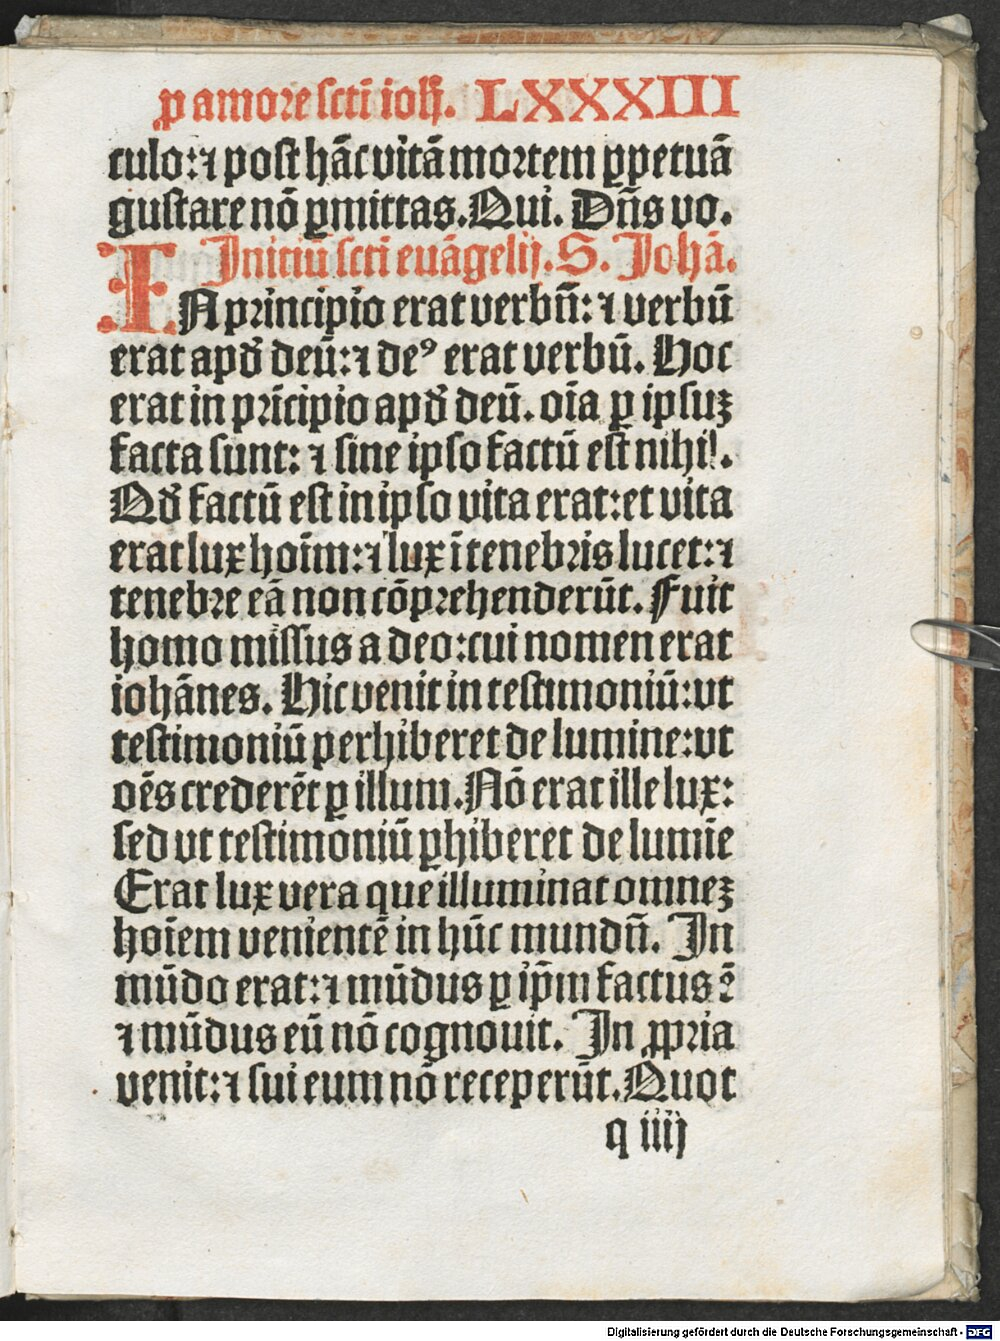 ꝓ amore scti ioħ. LXXXIIII
culo: ⁊ post hãc vitã mortem ꝑpetuã
gustare nõ ꝑmittas. Qui. Dñs vo.
Initiũ scti euãgelij. S. Johã.
IN principio erat verbũ: ⁊ verbũ
erat apđ deũ: ⁊ deꝰ erat verbũ. Hoc
erat in prĩcipio apđ deũ. oĩa ꝑ ipsuꝫ
facta sunt: ⁊ sine ipso factũ est nihil.
Qđ factũ est in ipso vita erat: et vita
erat lux hoĩm: ⁊ lux ĩ tenebris lucet: ⁊
tenebre eã non cõprehenderũt. Fuit
homo missus a deo: cui nomen erat
iohãnes. Hic venit in testimoniũ: vt
testimoniũ perhiberet de lumine: vt
oẽs crederẽt ꝑ illum. Nõ erat ille lux:
sed vt testimoniũ ꝑhiberet de lumĩe
Erat lux vera que illuminat omneꝫ
hoĩem venientẽ in hũc mundũ. In
mũdo erat: ⁊ mũdus ꝑ ip̃m factus ẽ
⁊ mũdus eũ nõ cognouit. In ꝓpria
venit: ⁊ sui eum nõ receperũt. Quot
q iiij
Digitalisierung gefördert durch die Deutsche Forschungsgemeinschaft - DFG